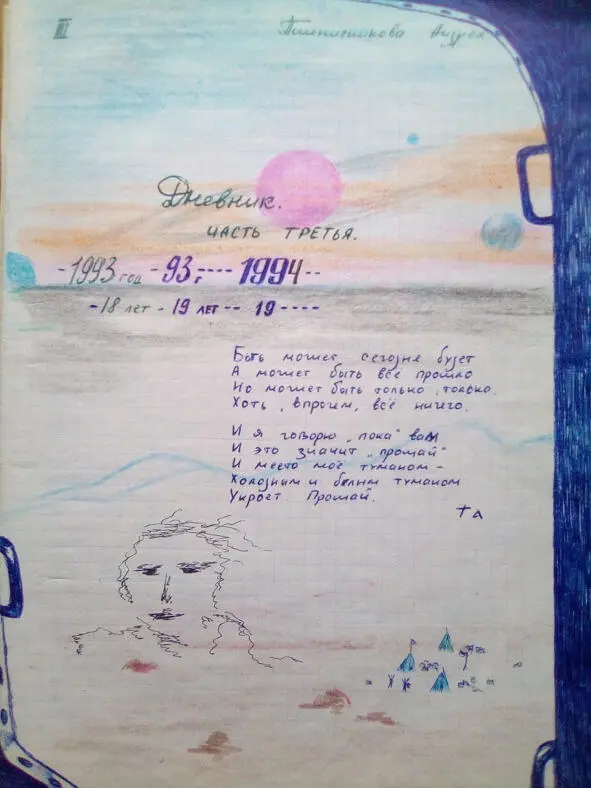 III
Андрея
Дневник.
ЧАСТЬ ТРЕТЬЯ.
-1993 год -93,---- 1994--
-18 лет - 19 лет-- 19 ----
Быть может сегодня будет
А может быть всё прошло
Но может быть только, только.
Хоть, впрочем, всё ничего.
И я говорю „пока" вам
И это значит „прощай"
И место моё туманом-
Холодным и белым туманом
Укроет. Прощай.
Та